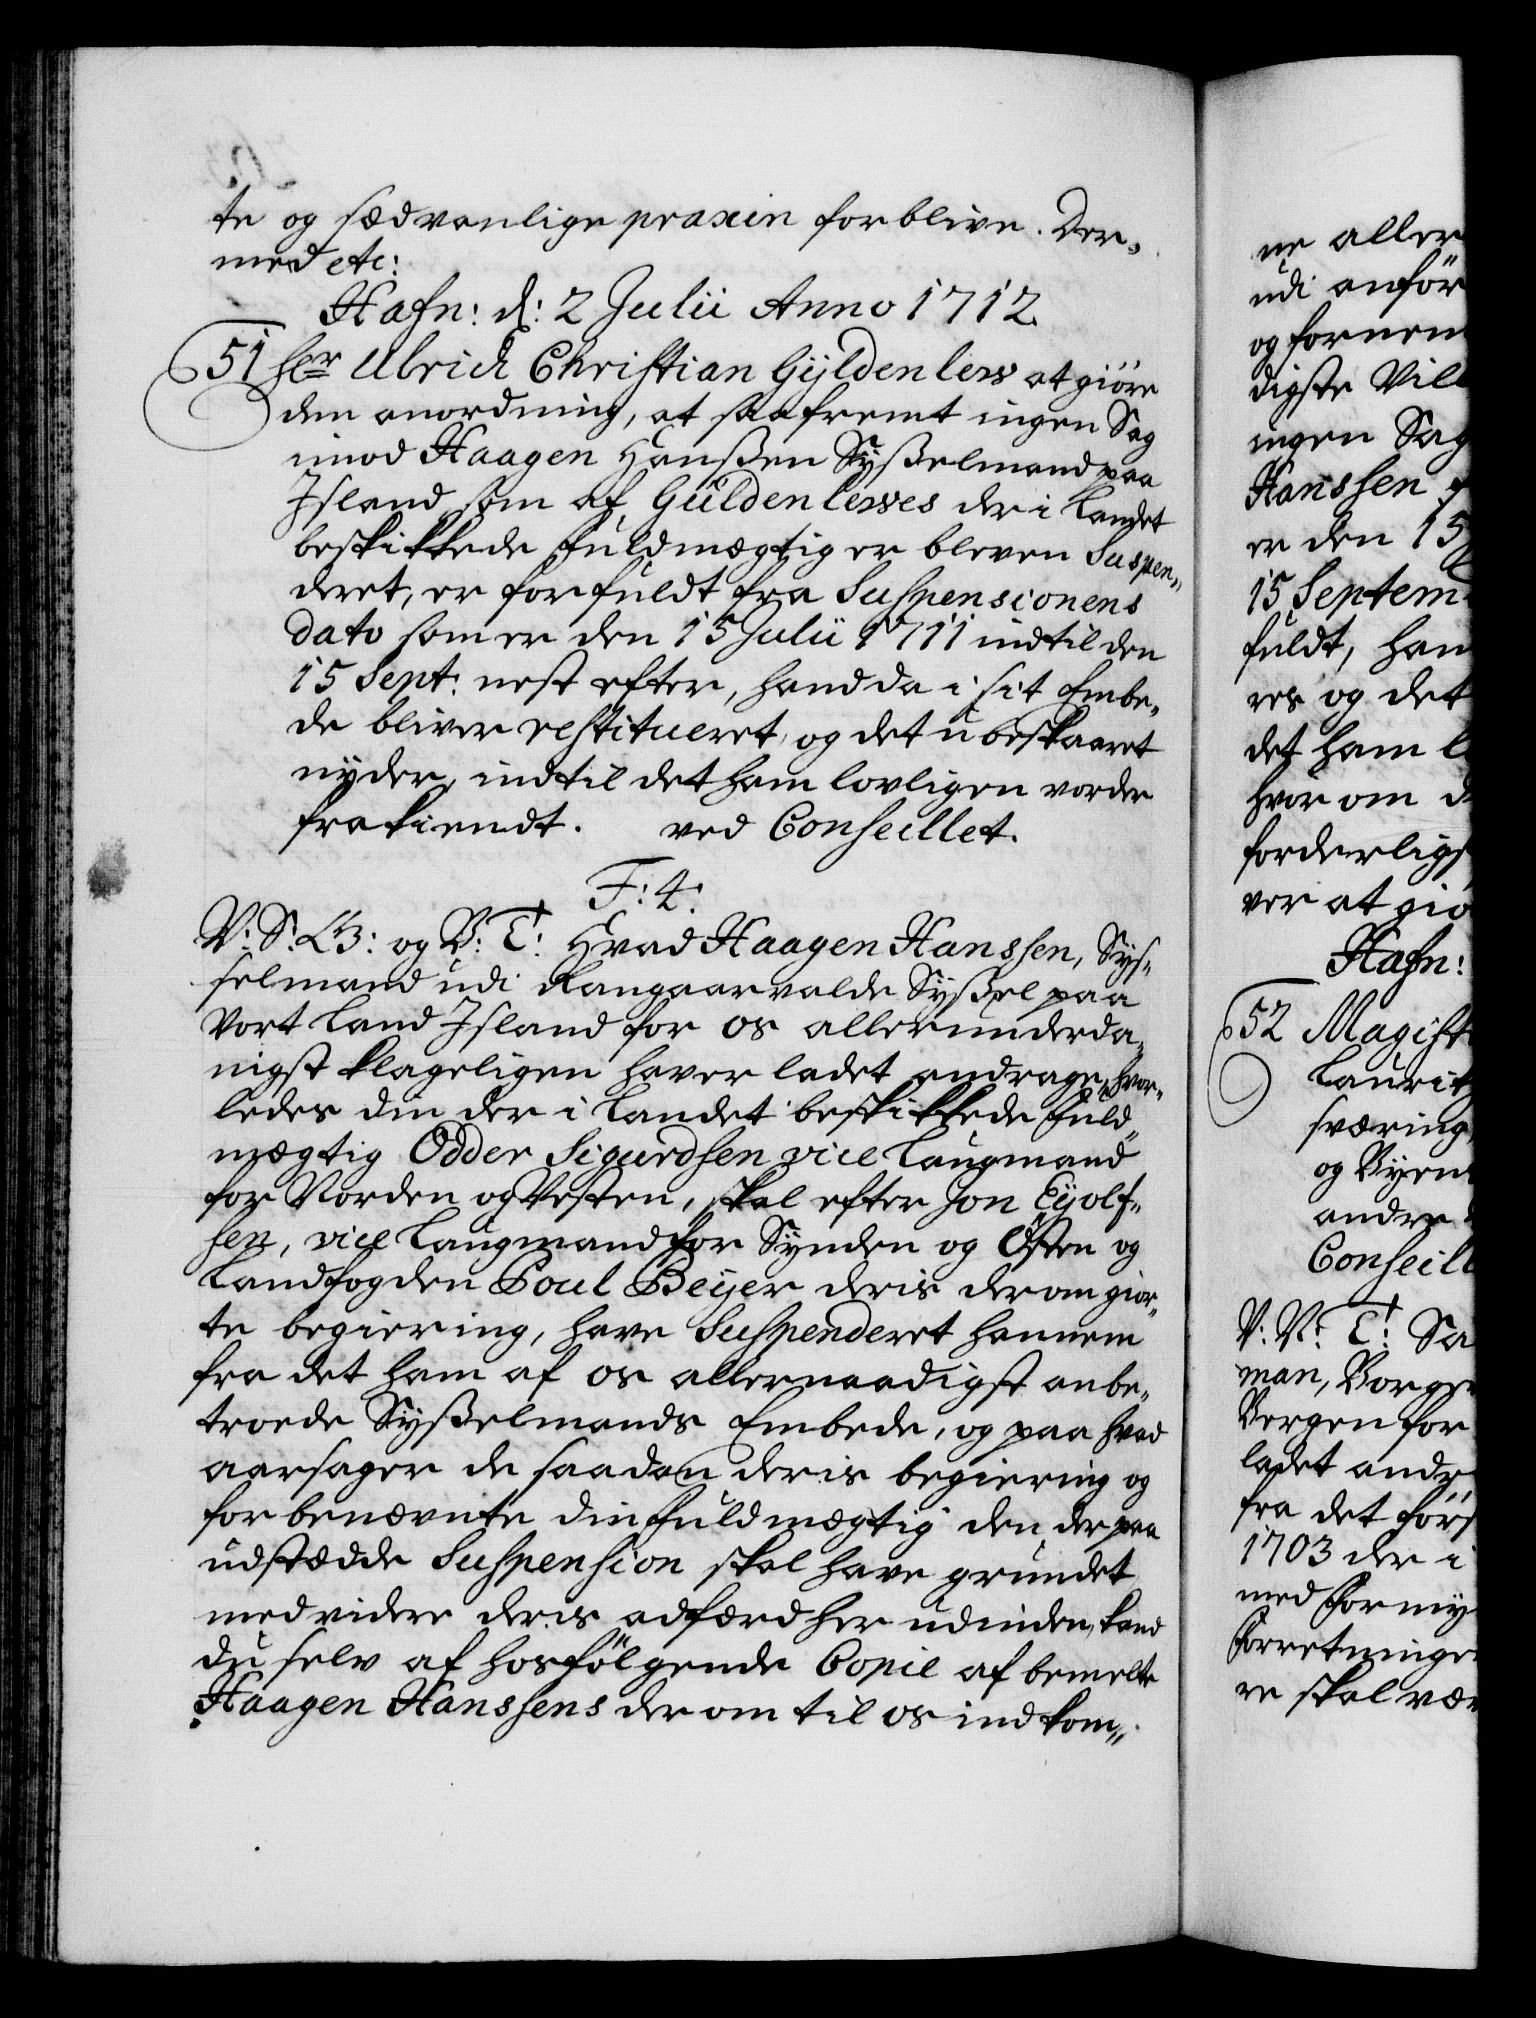 te og sædvanlige praxin forblive. Der„
med etc:
Hafn: d: 2 Julii Anno 1712.
51 hr Ulrich Christian Gÿldenlew at giöre
den anordning, at saafremt ingen Sag
imod Haagen Hanßen Sÿßelmand paa
Jsland som af Guldenlewes der i Landet
beskikkede fuldmægtig er bleven Suspen„
deret, er forfuldt fra Suspensionens
dato som er den 15 Julii 1711 indtil den
15 Sept: nest efter, hand da i sit Embe„
de bliver restitueret, og det ubeskaaret
nÿder, indtil det ham lovligen vorder
frakiendt. ved Conseillet.
F: 4.
V: S: G: og V: T: Hvad Haagen Hanssen, Sÿs„
selmand udi Rangaarvalde Sÿßel paa
Vort Land Jsland for os allerunderda„
nigst klageligen haver ladet andrage, hvor„
ledes din der i Landet beskikkede fuld„
mægtig Odder Sigurdsen vice Laugmand
for Norden og Vesten, skal efter Jon Eÿolf„
sen, vice Laugmand for Sÿnden og Östen og
Landfogden Poul Beÿer deris derom gior„
te begiering, have Suspenderet hannem
fra det ham af os allernaadigst anbe„
troede Sÿßelmands Embede, og paa hvad
aarsager de saadan deris begiering og
forbenævnte din fuldmægtig den derpaa
udstædde Suspension skal have grundet
med videre deris adfærd her udinden, kand
du selv af hosfölgende Copie af bemelte
Haagen Hanssens derom til os indkom„
ne aller
udi anför
og fornem
digste Vill
ingen Sag
Hanssen
er den 15
15 Septem
fuldt, han
res og det
det ham l
hvor om d
forderligs
ver at giö
Hafn:
52 Magist
Laurit
sværing
og Bÿen
andre
Conseill
V: V: T: Sa
man, Borger
Bergen for
ladet andr
fra det förs
1703 der i
med for mÿ
forretninge
re skal vær